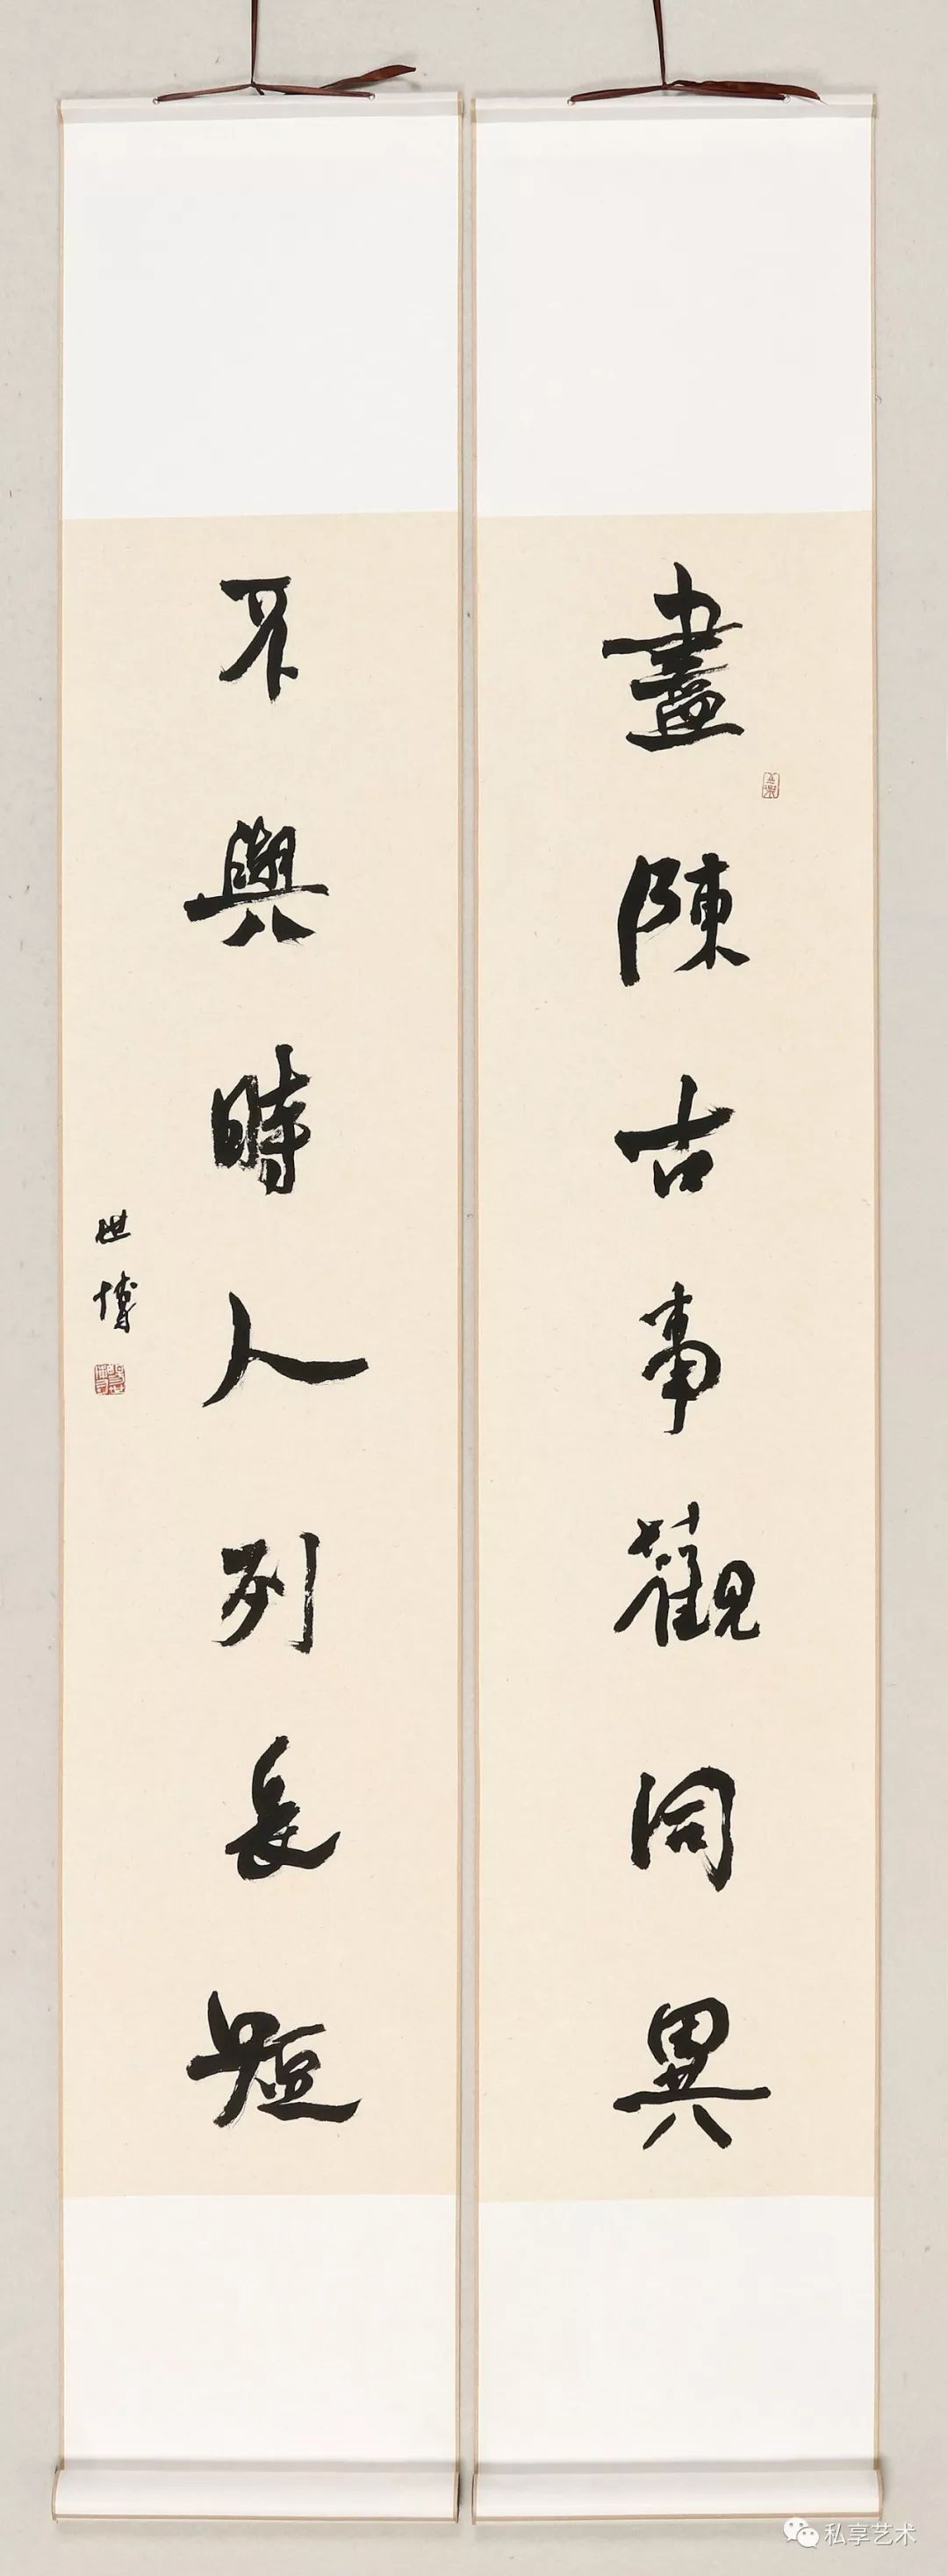 盡陳古事觀同異
不與時人列長短
世博
私享艺术